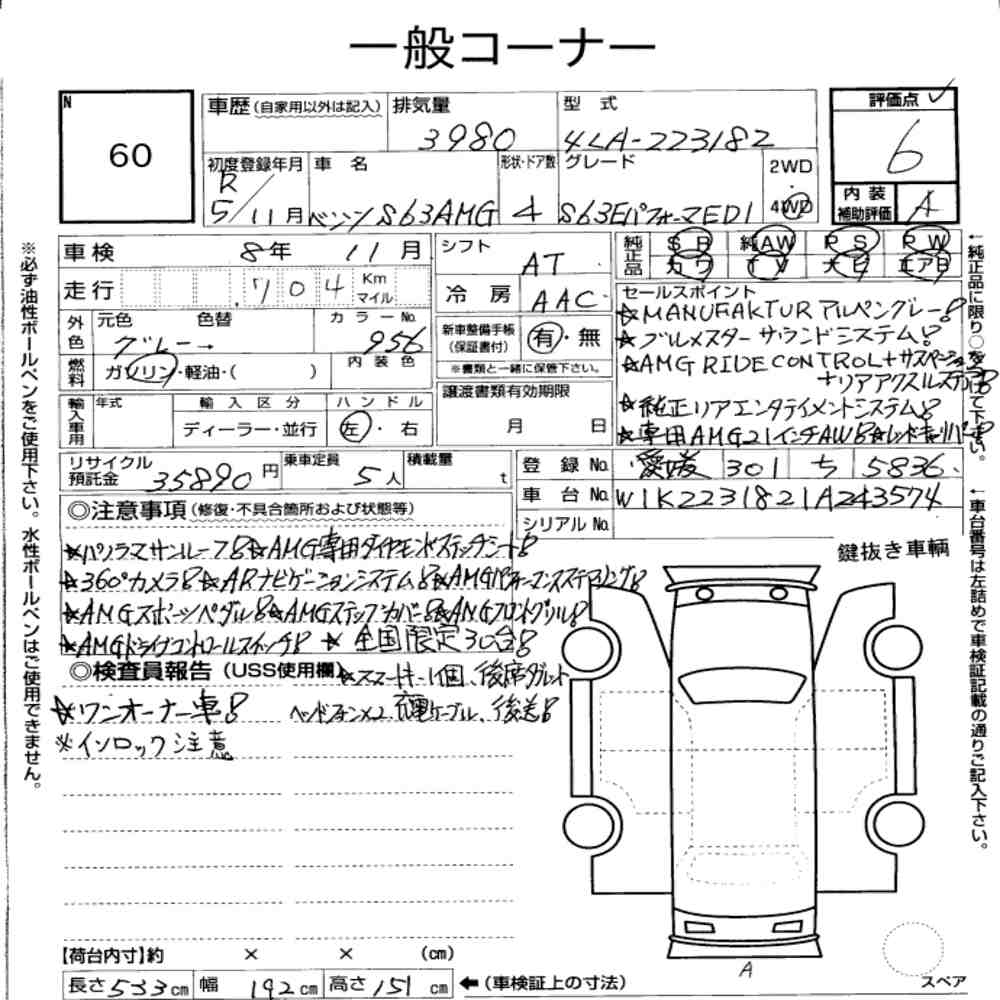 一般コーナー
N
60
車歴(自家用以外は記入)
排気量
3980
型 式
4LA-223182
評価点
6
初度登録年月
R
5/11月
車 名
ベンツ S63AMG
形状・ドア数
4
グレード
S63EパフォーマED1
2WD
4WD
内 装
補助評価
A
車検 8年 11月
走行
704
Km
マイル
外色
元色
グレー→
色替
カラーNo.
956
燃料
ガソリン・軽油・( )
内装色
輸入車用
年式
輸 入 区 分
ディーラー・並行
ハ ン ド ル
左・右
シフト
AT
冷 房
AAC
新車整備手帳
(保証書付)
有・無
※書類と一緒に保管下さい。
譲渡書類有効期限
月 日
純正品
SR 純AW PS PW
カワ TV ナビ エアB
セールスポイント
★MANUFAKTUR アルペングレー!
★ブルメスターサウンドシステム!
★AMG RIDE CONTROL+サスペンション
+リアアクスルステア!
★純正リアエンタテイメントシステム!
★専用AMG21インチAW!★レッドキャリパー!
リサイクル
預託金
35890円
乗車定員
5人
積載量
t
登 録 No. 愛媛 301 ち 5836
車 台 No. W1K2231821A243574
シリアル No.
◎注意事項(修復・不具合箇所および状態等)
★パノラマサンルーフ!★AMG専用ダイヤモンドステッチシート!
★360°カメラ!★ARナビゲーションシステム!★AMGパフォーマンスステアリング!
★AMGスポーツペダル!★AMGステップカバー!★AMGフロントグリル!
★AMGドライブコントロールスイッチ!★ 全国限定30台!
◎検査員報告(USS使用欄)
★スマートキー1個、後席タブレット
★ワンオーナー車!
ヘッドフォン×2 充電ケーブル、後送!
※インロック注意
鍵抜き車輌
A
スペア
【荷台内寸】約 × × (cm)
長さ533cm 幅 192cm 高さ151cm
←(車検証上の寸法)
※必ず油性ボールペンをご使用下さい。水性ボールペンはご使用できません。
←純正品に限り○を
て下さい。
←車台番号は左詰めで車検証記載の通りご記入下さい。